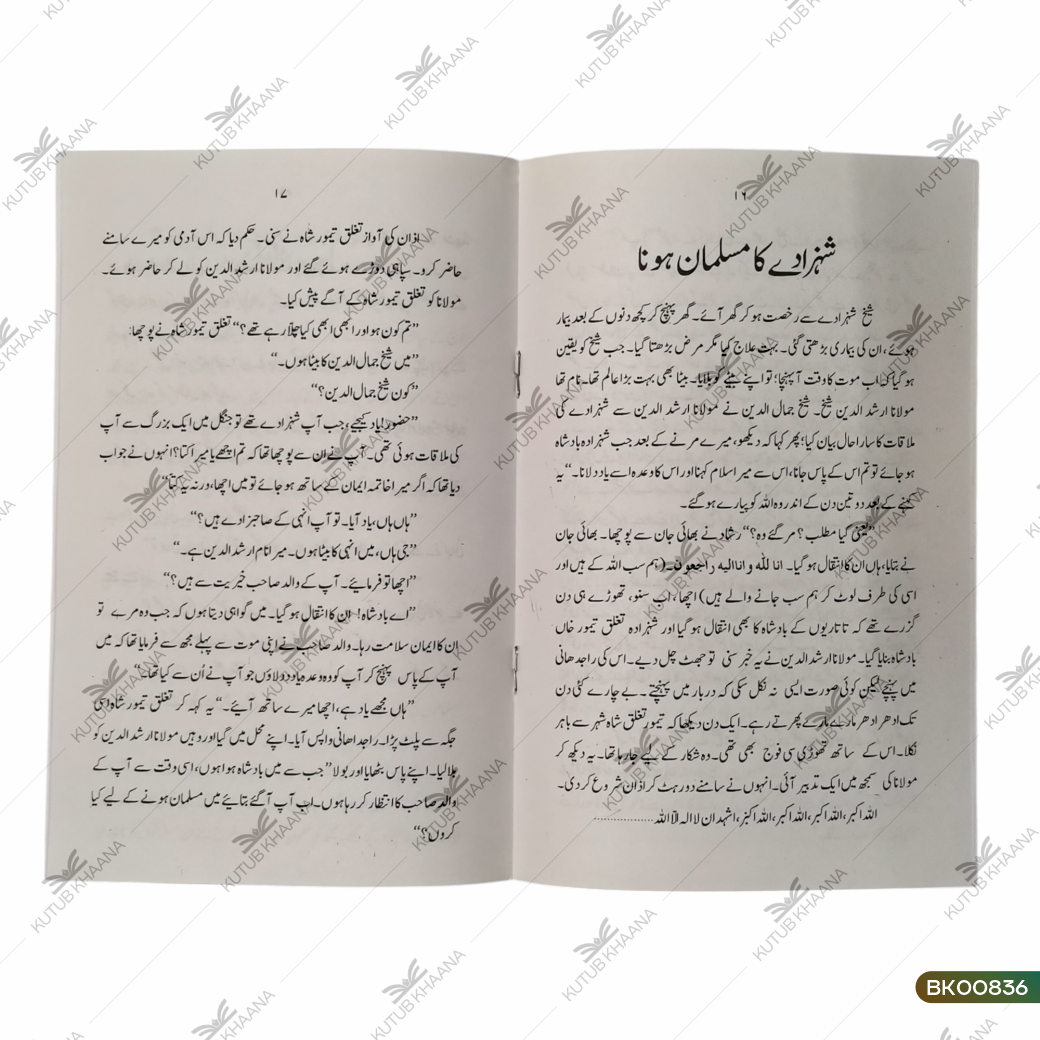 ۱۶
شہزادے کا مسلمان ہونا
شیخ شہزادے سے رخصت ہو کر گھر آئے۔ گھر پہنچ کر کچھ دنوں کے بعد بیمار
ہوئے، ان کی بیماری بڑھتی گئی۔ بہت علاج کیا مگر مرض بڑھتا گیا۔ جب شیخ کو یقین
ہو گیا کہ اب موت کا وقت آ پہنچا؛ تو اپنے بیٹے کو بلایا۔ بیٹا بھی بہت بڑا عالم تھا۔ نام تھا
مولانا ارشد الدین شیخ۔ شیخ جمال الدین نے مولانا ارشد الدین سے شہزادے کی
ملاقات کا سارا حال بیان کیا؛ پھر کہا کہ دیکھو، میرے مرنے کے بعد جب شہزادہ بادشاہ
ہو جائے تو تم اس کے پاس جانا، اس سے میرا سلام کہنا اور اس کا وعدہ اسے یاد دلانا۔“ یہ
کہنے کے بعد دو تین دن کے اندر وہ اللہ کو پیارے ہو گئے۔
”یعنی کیا مطلب؟ مر گئے وہ؟“ رشاد نے بھائی جان سے پوچھا۔ بھائی جان
نے بتایا، ہاں ان کا انتقال ہو گیا۔ انا للہ و انا الیہ راجعون۔ (ہم سب اللہ کے ہیں اور
اسی کی طرف لوٹ کر ہم سب جانے والے ہیں) اچھا، اب سنو، تھوڑے ہی دن
گزرے تھے کہ تاتاریوں کے بادشاہ کا بھی انتقال ہو گیا اور شہزادہ تغلق تیمور خاں
بادشاہ بنایا گیا۔ مولانا ارشد الدین نے یہ خبر سنی تو جھٹ چل دیے۔ اس کی راجدھانی
میں پہنچے لیکن کوئی صورت ایسی نہ نکل سکی کہ دربار میں پہنچتے۔ بے چارے کئی دن
تک ادھر ادھر مارے مارے پھرتے رہے۔ ایک دن دیکھا کہ تیمور تغلق شاہ شہر سے باہر
نکلا۔ اس کے ساتھ تھوڑی سی فوج بھی تھی۔ وہ شکار کے لیے جا رہا تھا۔ یہ دیکھ کر
مولانا کی سمجھ میں ایک تدبیر آئی۔ انہوں نے سامنے دور ہٹ کر اذان شروع کر دی۔
اللہ اکبر، اللہ اکبر، اللہ اکبر، اللہ اکبر، اشہد ان لا الہ الا اللہ ..................
۱۷
اذان کی آواز تغلق تیمور شاہ نے سنی۔ حکم دیا کہ اس آدمی کو میرے سامنے
حاضر کرو۔ سپاہی دوڑے ہوئے گئے اور مولانا ارشد الدین کو لے کر حاضر ہوئے۔
مولانا کو تغلق تیمور شاہ کے آگے پیش کیا۔
”تم کون ہو اور ابھی ابھی کیا چلا رہے تھے؟“ تغلق تیمور شاہ نے پوچھا:
”میں شیخ جمال الدین کا بیٹا ہوں۔“
”کون شیخ جمال الدین؟“
”حضور! یاد کیجیے، جب آپ شہزادے تھے تو جنگل میں ایک بزرگ سے آپ
کی ملاقات ہوئی تھی۔ آپ نے ان سے پوچھا تھا کہ تم اچھے یا میرا کتا؟ انہوں نے جواب
دیا تھا کہ اگر میرا خاتمہ ایمان کے ساتھ ہو جائے تو میں اچھا، ورنہ یہ کتا“
”ہاں ہاں، یاد آیا۔ تو آپ انہی کے صاحبزادے ہیں؟“
”جی ہاں، میں انہی کا بیٹا ہوں۔ میرا نام ارشد الدین ہے۔“
”اچھا تو فرمائیے۔ آپ کے والد صاحب خیریت سے ہیں؟“
”اے بادشاہ! ان کا انتقال ہو گیا۔ میں گواہی دیتا ہوں کہ جب وہ مرے تو
ان کا ایمان سلامت رہا۔ والد صاحب نے اپنی موت سے پہلے مجھ سے فرمایا تھا کہ میں
آپ کے پاس پہنچ کر آپ کو وہ وعدہ یاد دلاؤں جو آپ نے اُن سے کیا تھا“
”ہاں مجھے یاد ہے، اچھا میرے ساتھ آئیے۔“ یہ کہہ کر تغلق تیمور شاہ اسی
جگہ سے پلٹ پڑا۔ راجدھانی واپس آیا۔ اپنے محل میں گیا اور وہیں مولانا ارشد الدین کو
بلا لیا۔ اپنے پاس بٹھایا اور بولا ”جب سے میں بادشاہ ہوا ہوں، اسی وقت سے آپ کے
والد صاحب کا انتظار کر رہا ہوں۔ اب آپ آ گئے بتائیے میں مسلمان ہونے کے لیے کیا
کروں؟“
KUTUB KHAANA
BK00836